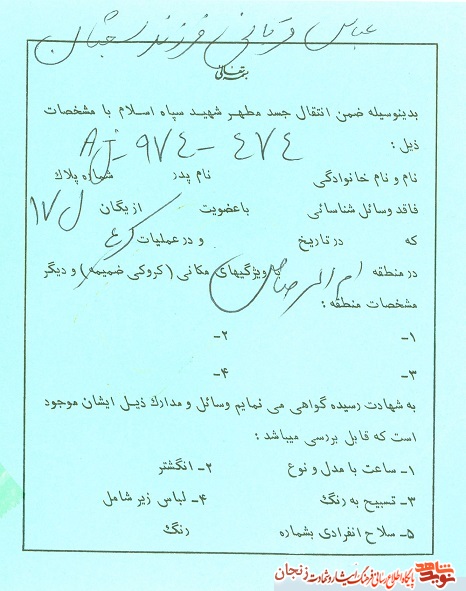 عباس قربانی فرزند شعبان
بسمه تعالی
بدینوسیله ضمن انتقال جسد مطهر شهید سپاه اسلام با مشخصات
ذیل : AJ-974-474
نام و نام خانوادگی نام پدر شماره پلاك
فاقد وسائل شناسائی باعضویت ازیگان ل ۱۷
که درتاریخ و درعملیات ک ۴
درمنطقه ام الرصاص با ویژگیهای مکانی (کروکی ضمیمه) و دیگر
مشخصات منطقه :
۱- ۲-
۳- ۴-
به شهادت رسیده گواهی می نمایم وسائل و مدارك ذیل ایشان موجود
است که قابل بررسی میباشد :
۱- ساعت با مدل و نوع ۲- انگشتر
۳- تسبیح به رنگ ۴- لباس زیر شامل
۵- سلاح انفرادی بشماره رنگ
نوید شاهد پایگاه اطلاع رسانی فرهنگ ایثار و شهادت زنجان